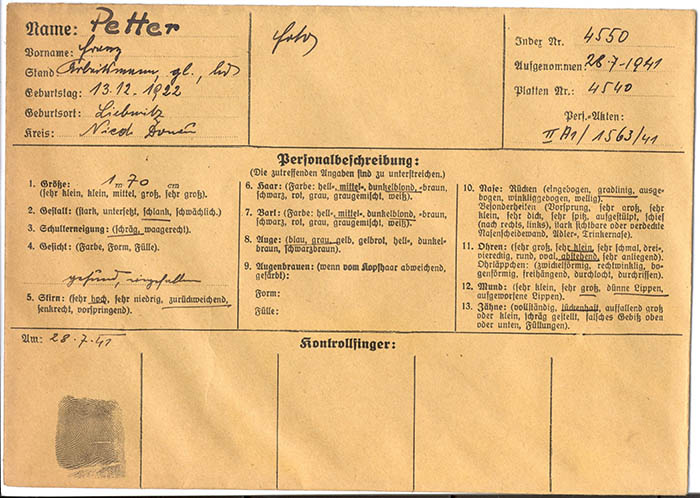 Name: Petter
Vorname: Franz
Stand: Arbeitsmann, gl., led
Geburtstag: 13.12.1922
Geburtsort: Liebnitz
Kreis: Nied. Donau
Foto
Index Nr. 4550
Aufgenommen: 28.7-1941
Platten Nr.: 4540
Pers.-Akten:
II A1/1563/41
Personalbeschreibung:
(Die zutreffenden Angaben sind zu unterstreichen.)
1. Größe: 1 m 70 cm
(sehr klein, klein, mittel, groß, sehr groß).
2. Gestalt: (stark, untersetzt, schlank, schwächlich).
3. Schulterneigung: (schräg, waagerecht).
4. Gesicht: (Farbe, Form, Fülle).
gesund, eingefallen
5. Stirn: (sehr hoch, sehr niedrig, zurückweichend,
senkrecht, vorspringend).
6. Haar: (Farbe: hell-, mittel-, dunkelblond, -braun,
schwarz, rot, grau, graugemischt, weiß).
7. Bart: (Farbe: hell-, mittel-, dunkelblond, -braun,
schwarz, rot, grau, graugemischt, weiß).
8. Auge: (blau, grau, gelb, gelbrot, hell-, dunkel-
braun, schwarzbraun).
9. Augenbrauen: (wenn vom Kopfhaar abweichend,
gefärbt):
Form:
Fülle:
10. Nase: Rücken (eingebogen, gradlinig, ausge-
bogen, winkliggebogen, wellig).
Besonderheiten (Vorsprung, sehr groß, sehr
klein, sehr dick, sehr spitz, aufgestülpt, schief
(nach rechts, links), stark sichtbare oder verdeckte
Nasenscheidewand, Adler-, Trinkernase).
11. Ohren: (sehr groß, sehr klein, sehr schmal, drei-,
viereckig, rund, oval, abstehend, sehr anliegend).
Ohrläppchen: (zwickelförmig, rechtwinklig, bo-
genförmig, freihängend, durchlocht, durchrissen).
12. Mund: (sehr klein, sehr groß, dünne Lippen,
aufgeworfene Lippen).
13. Zähne: (vollständig, lückenhaft, auffallend groß
oder klein, schräg gestellt, falsches Gebiß oben
oder unten, Füllungen).
Am: 28.7.41
Kontrollfinger: